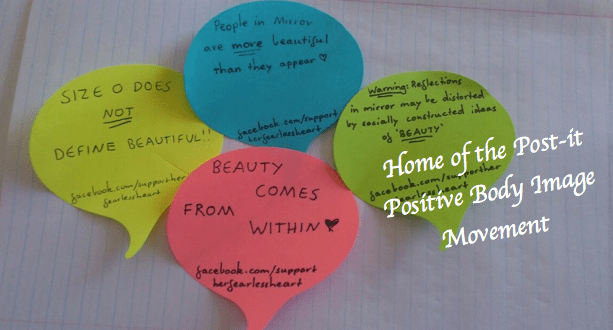 People in Mirror
are more beautiful
than they appear ♡
facebook.com/support
herfearlessheart
SIZE O DOES
NOT
DEFINE BEAUTIFUL!!
facebook.com/supporther
fearlessheart
Warning: Reflections
in mirror may be distorted
by socially constructed ideas
of 'BEAUTY'
facebook.com/supporther
fearlessheart
BEAUTY
COMES
FROM
WITHIN ♥
facebook.com/support
herfearlessheart
Home of the Post-it
Positive Body Image
Movement